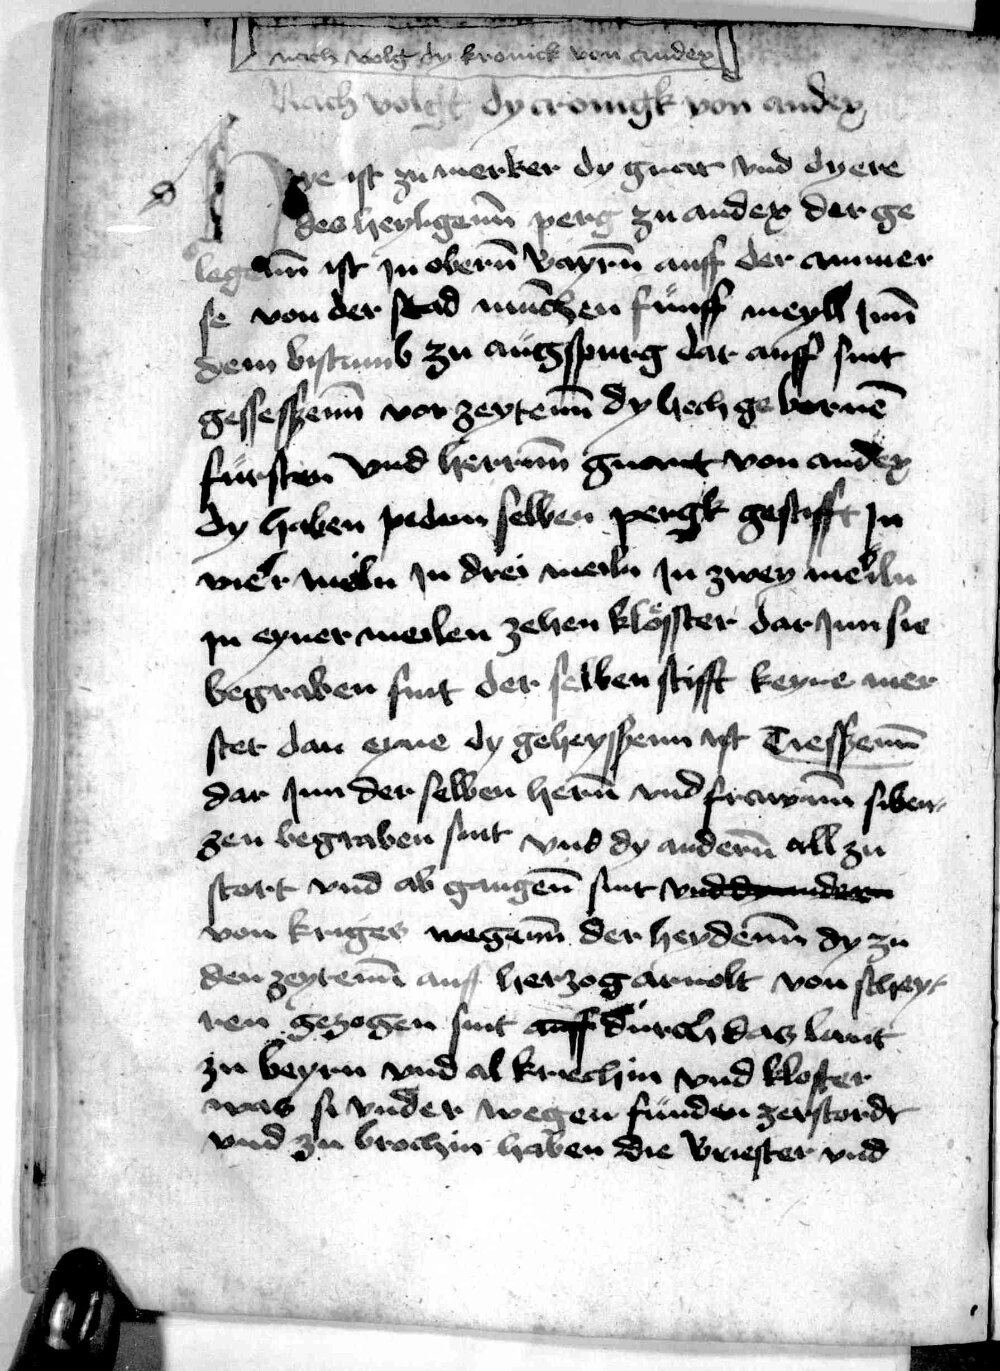 nach volg dy kronick von andex
Nach volgtt dy cronigk von andex
Hye ist zu merken dy gnat vnd dy ere
des heyligenn perg zu andex der ge
legenn ist Jn obern Bayrn auff der ammer
se von der stad münchen fünff meyll Jnn
dem bistumb zu augspurg dar auff sint
gessesszenn vor zeytenn dy hochgebornen
fürsten vnd herrnn gnant von andex
dy haben selben pergk gestifft Jn
vier meiln Jn drei meiln Jn zwey meiln
Jn eyner meilen zehen klösster dar Jnn sie
begraben sint der selben stifft keyne mer
stet dan eyne dy geheysszenn ist Diesszenn
dar Jnn der selben hern vnd frawnn siben-
zen begraben sint vnd dy andern all zu
stort vnd ab gangen sint vnd dy andern
von kriges wegenn der heydenn dy zu
den zeytenn auff herzog arnolt von schey-
ren gezogen sint auff durch das lant
zu beyrn vnd al kirchin vnd kloster
was si vnder wegen fünden zerstordt
vnd zu brochin haben die Briester vnd